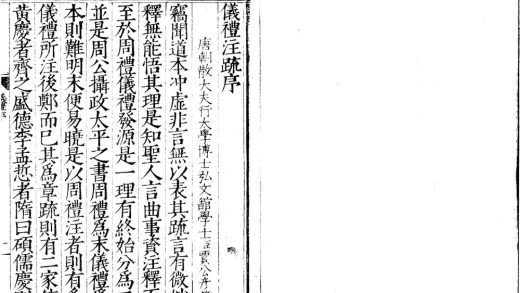 儀禮注疏序
唐朝散大夫行大學博士弘文館學士臣賈公彥
竊聞道本冲虛非言無以表其疏言有微
釋無能悟其理是知聖人言曲事資注釋
至於周禮儀禮發源是一理有終始分爲
並是周公攝政太平之書周禮爲末儀禮
本則難明末便易曉是以周禮注者則有
儀禮所注後鄭而已其爲章疏則有二家
黃慶者齊之盛德李孟悊者隋曰碩儒慶